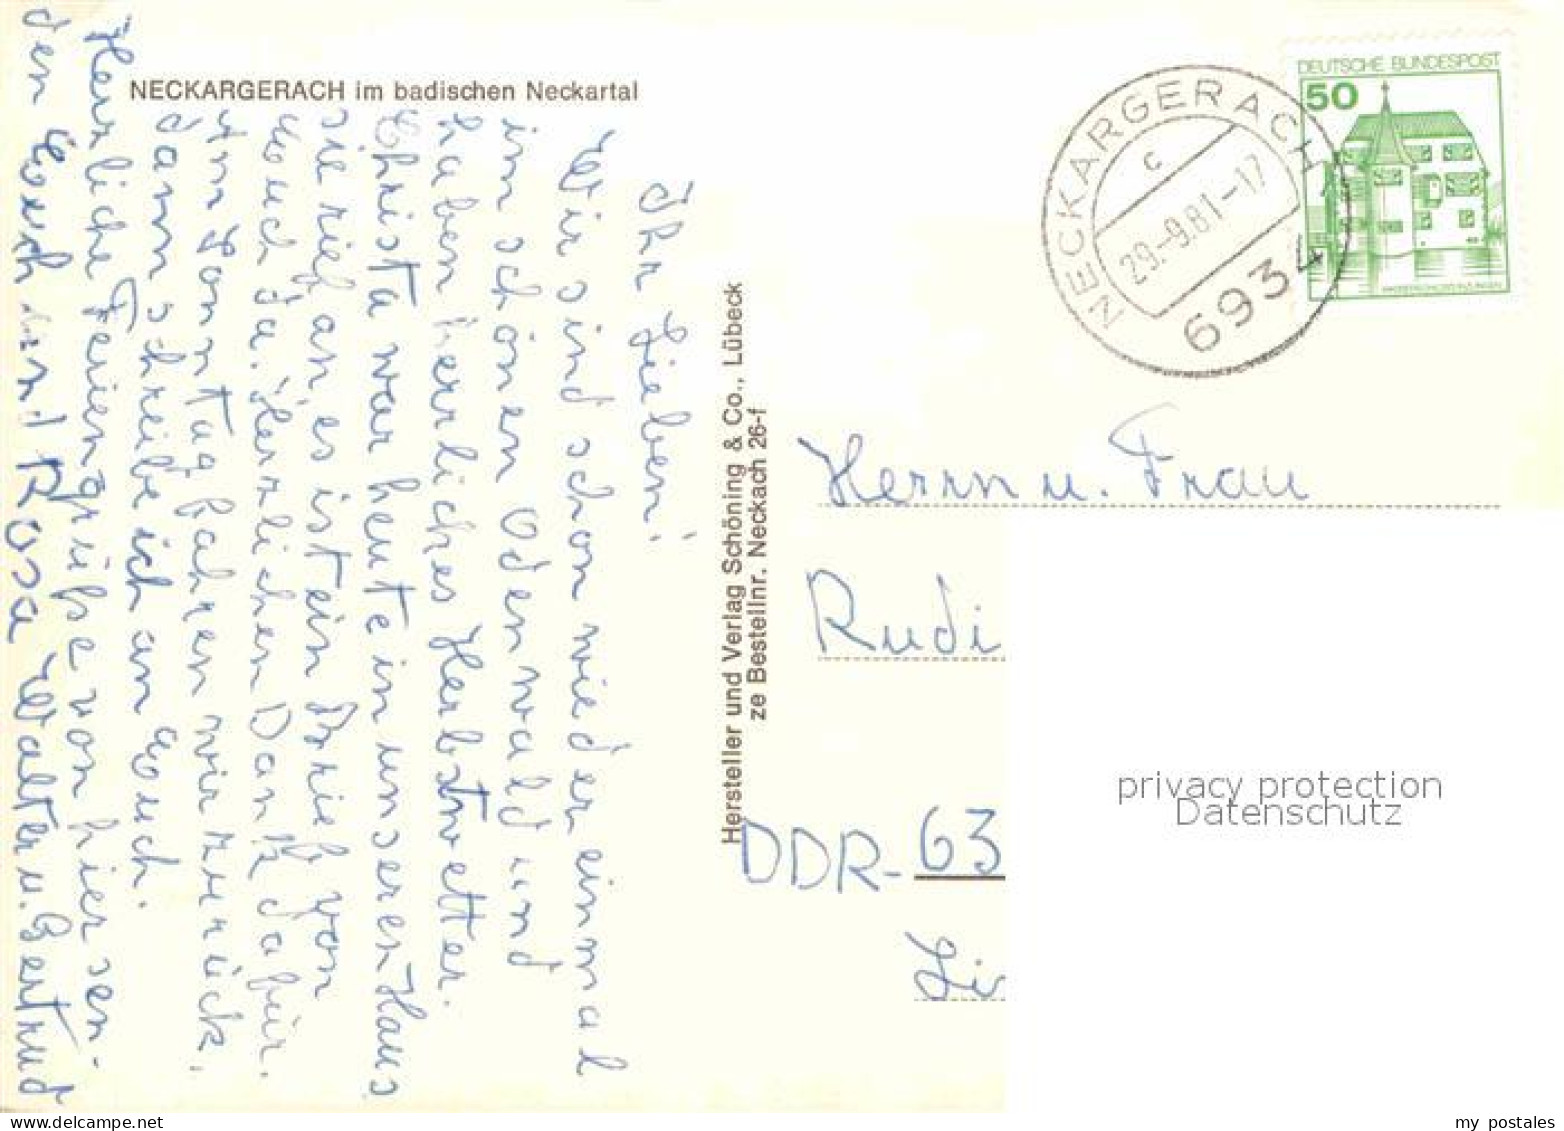 NECKARGERACH im badischen Neckartal
Ihr Lieben!
Wir sind schon wieder einmal
im schönen Odenwald und
haben herrliches Herbstwetter.
Christa war heute in unseren Haus
sie rief an, es ist ein Brief von
Euch da. Herzlichen Dank dafür.
Am Sonntag fahren wir zurück.
dann schreibe ich an Euch.
Herzliche Feriengrüße von hier sen-
den Euch und Rosa Walter u. Gertrud
Hersteller und Verlag Schöning & Co., Lübeck
ze Bestellnr. Neckach 26-f
NECKARGERACH
c
29.-9.81-17
6934
DEUTSCHE BUNDESPOST
50
Herrn u. Frau
Rudi
DDR-63
privacy protection
Datenschutz
my postales